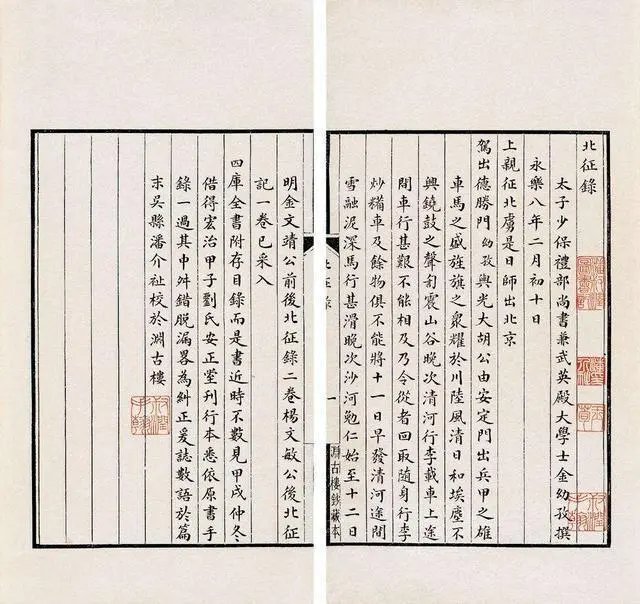 北征錄
太子少保禮部尚書兼武英殿大學士金幼孜撰
永樂八年二月初十日
上親征北虜是日師出北京
駕出德勝門幼孜與光大胡公由安定門出兵甲之雄
車馬之盛旌旗之眾耀於川陸風清日和埃塵不
興鐃鼓之聲訇震山谷晚次清河行李載車上途
間車行甚艱不能相及乃令從者回取隨身行李
炒糒車及餘物俱不能將十一日早發清河途間
雪融泥深馬行甚滑晚次沙河勉仁始至十二日
北征錄
一
淵古樓鈔藏本
明金文靖公前後北征錄二卷楊文敏公後北征
記一卷已采入
四庫全書附存目錄而是書近時不數見甲戌仲冬
借得宏治甲子劉氏安正堂刊行本悉依原書手
錄一過其中舛錯脫漏畧為糾正爰誌數語於篇
末吳縣潘介祉校於淵古樓